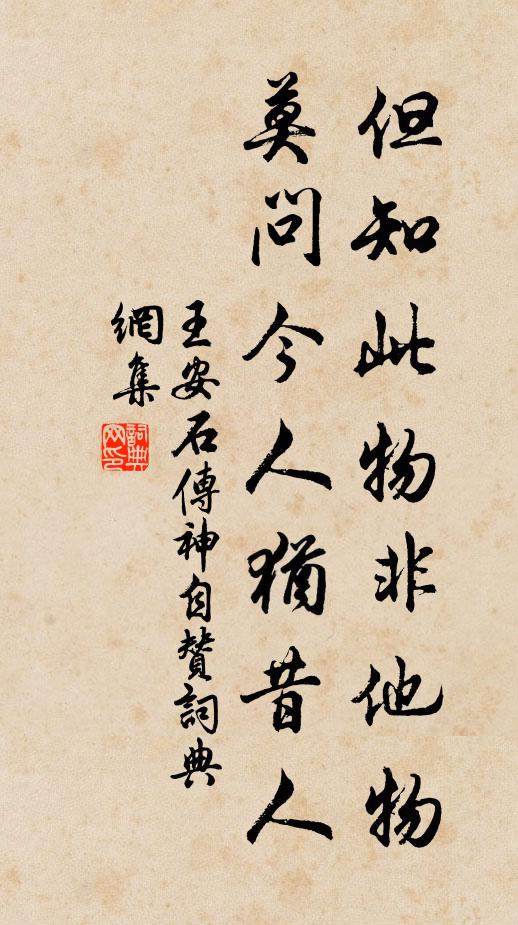 但知此物非他物
莫問今人猶昔人
王安石傳神自贊詞典
網集
詞典
网印